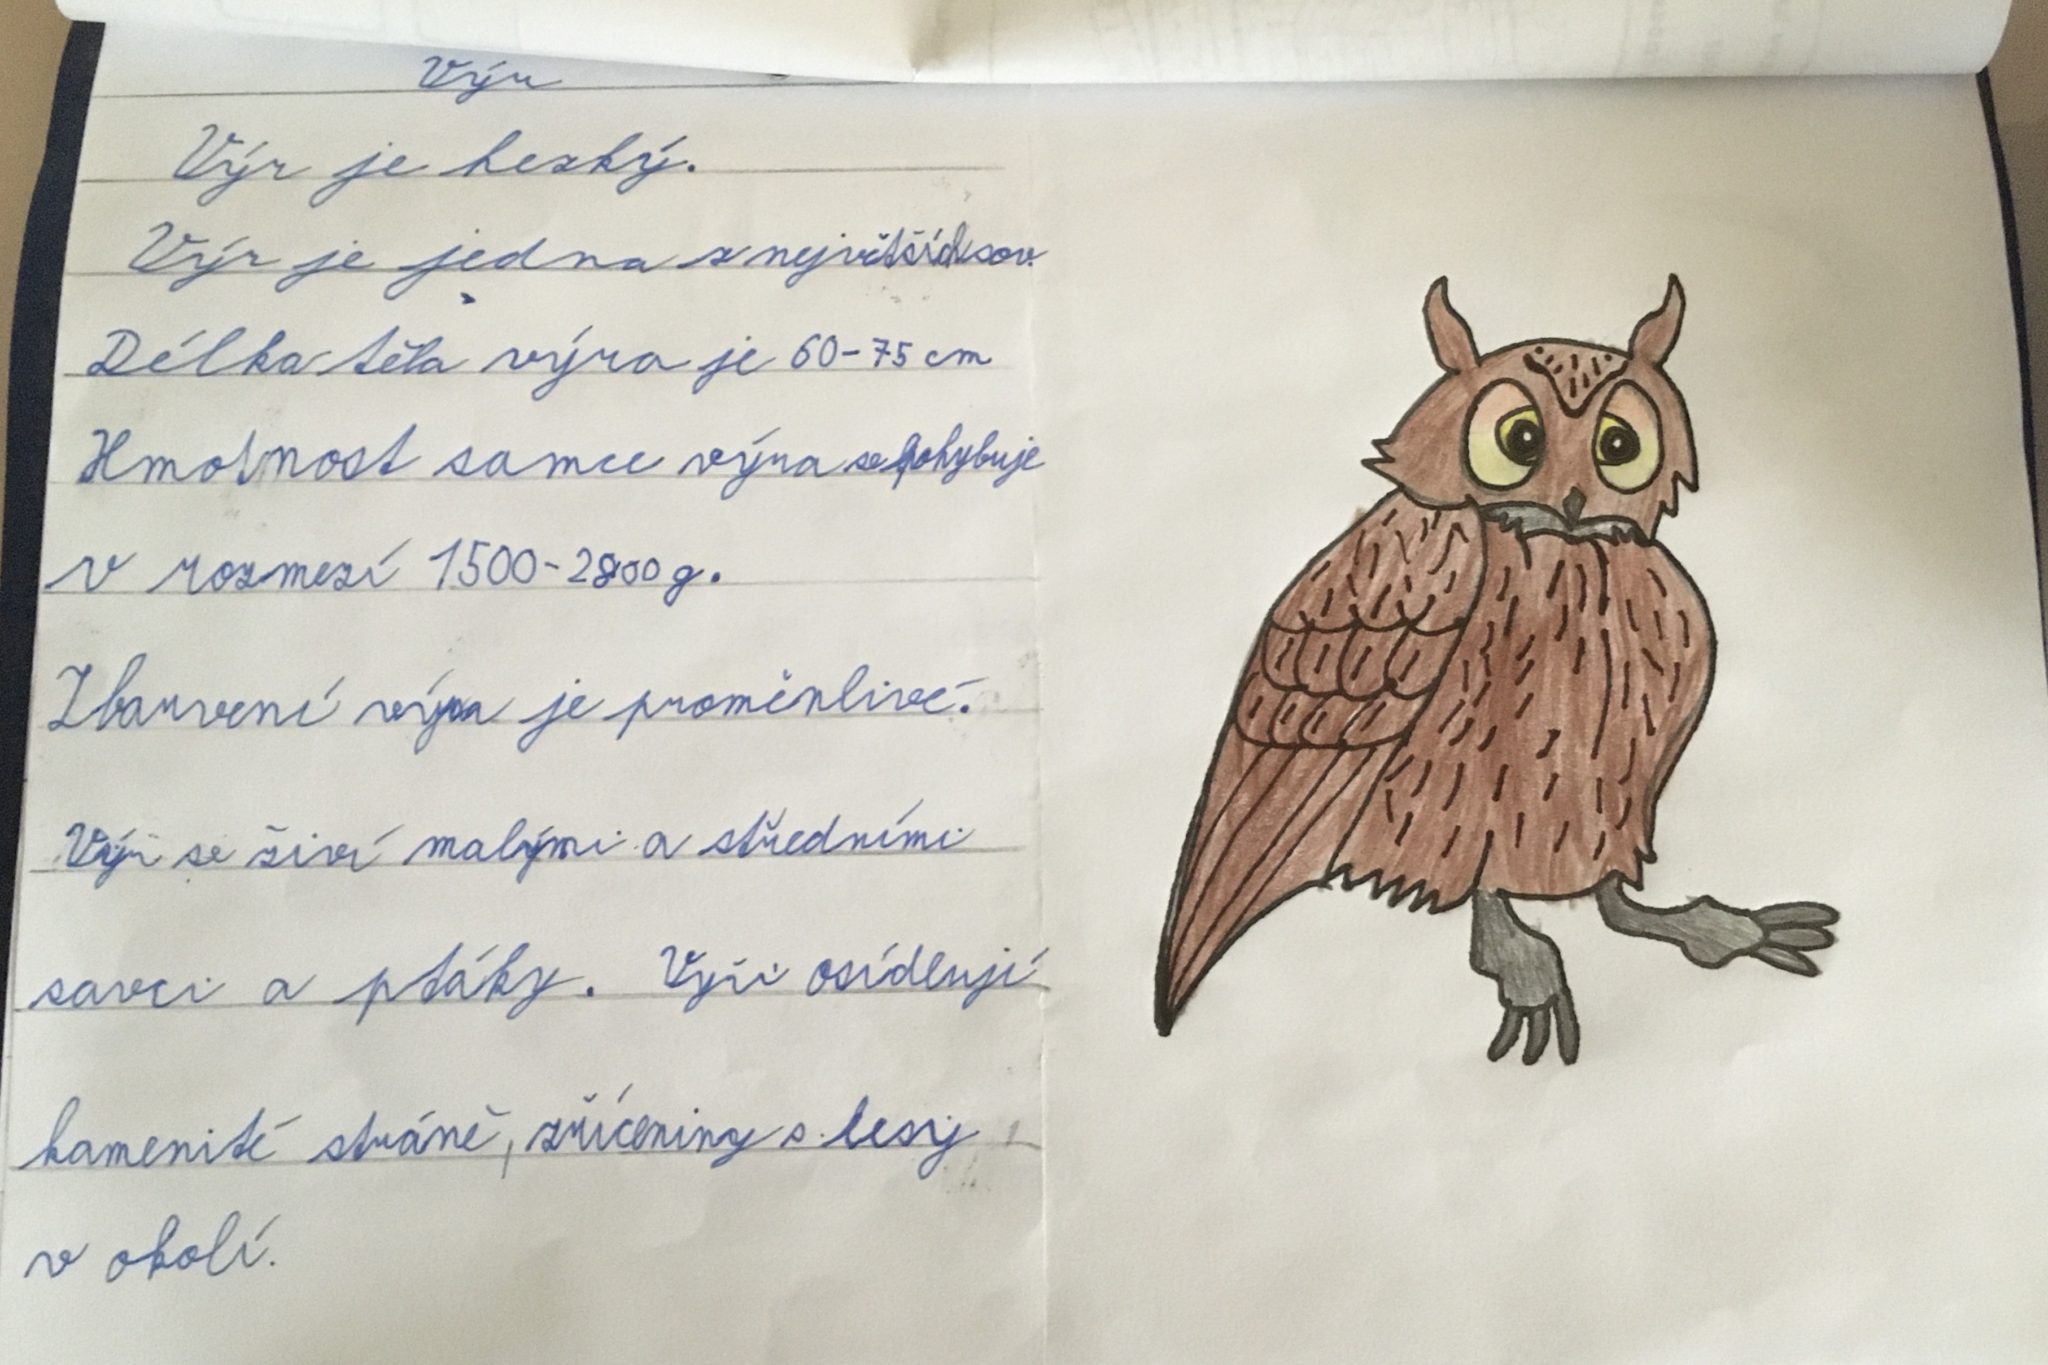 Výr
Výr je hezký.
Výr je jedna z největších sov.
Délka těla výra je 60-75 cm
Hmotnost samce výra se pohybuje
v rozmezí 1500-2800 g.
Zbarvení výra je proměnlivé.
Výr se živí malými a středními
savci a ptáky. Výři osídlují
kamenité stráně, zříceniny s lesy
v okolí.